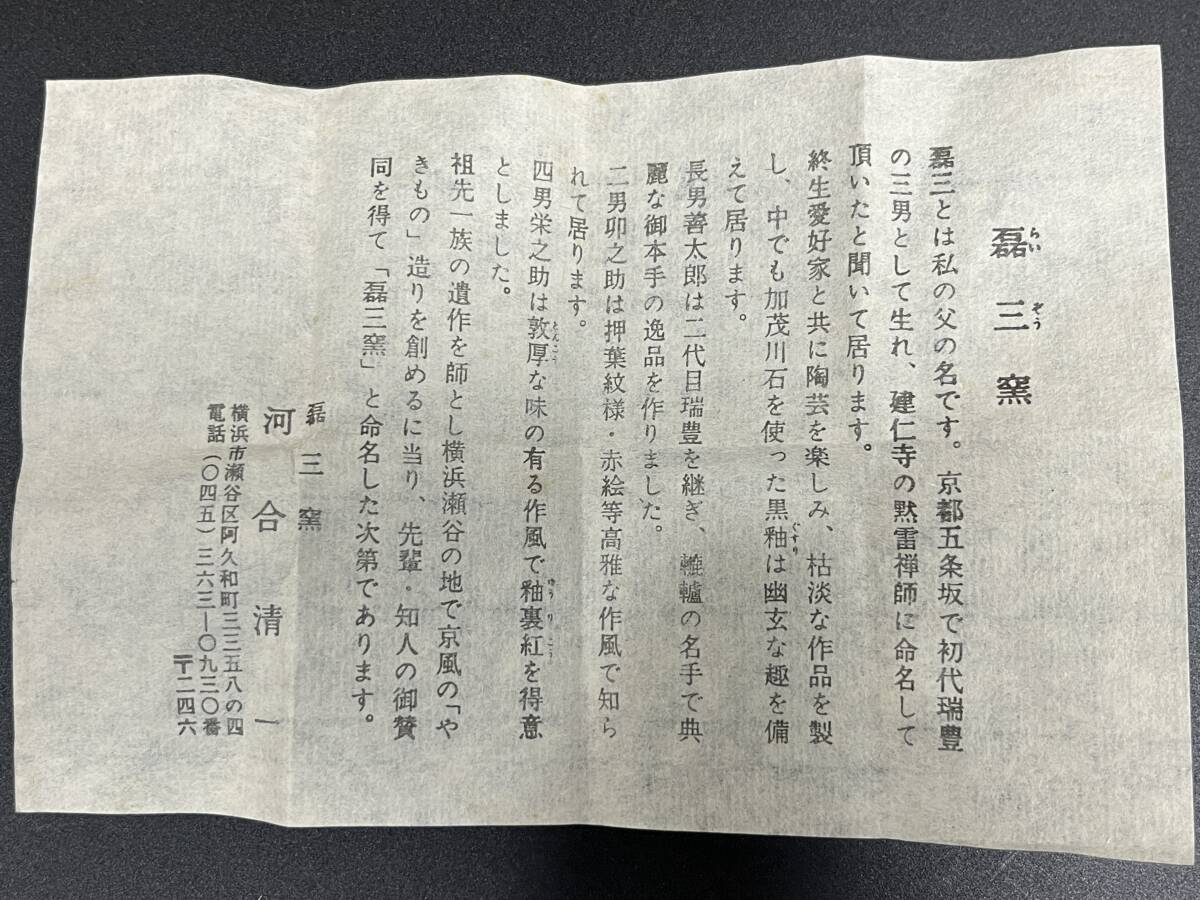 磊三窯
らいぞう
磊三とは私の父の名です。京都五条坂で初代瑞豊
の三男として生れ、建仁寺の黙雷禅師に命名して
頂いたと聞いて居ります。
終生愛好家と共に陶芸を楽しみ、枯淡な作品を製
し、中でも加茂川石を使った黒釉は幽玄な趣を備
ぐすり
えて居ります。
長男善太郎は二代目瑞豊を継ぎ、轆轤の名手で典
麗な御本手の逸品を作りました。
二男卯之助は押葉紋様・赤絵等高雅な作風で知ら
れて居ります。
四男栄之助は敦厚な味の有る作風で釉裏紅を得意
とんこう ゆうりこう
としました。
祖先一族の遺作を師とし横浜瀬谷の地で京風の「や
きもの」造りを創めるに当り、先輩・知人の御賛
同を得て「磊三窯」と命名した次第であります。
磊三窯
河合清一
横浜市瀬谷区阿久和町三三五八の四
電話(〇四五)三六三―〇九三〇番
〒二四六